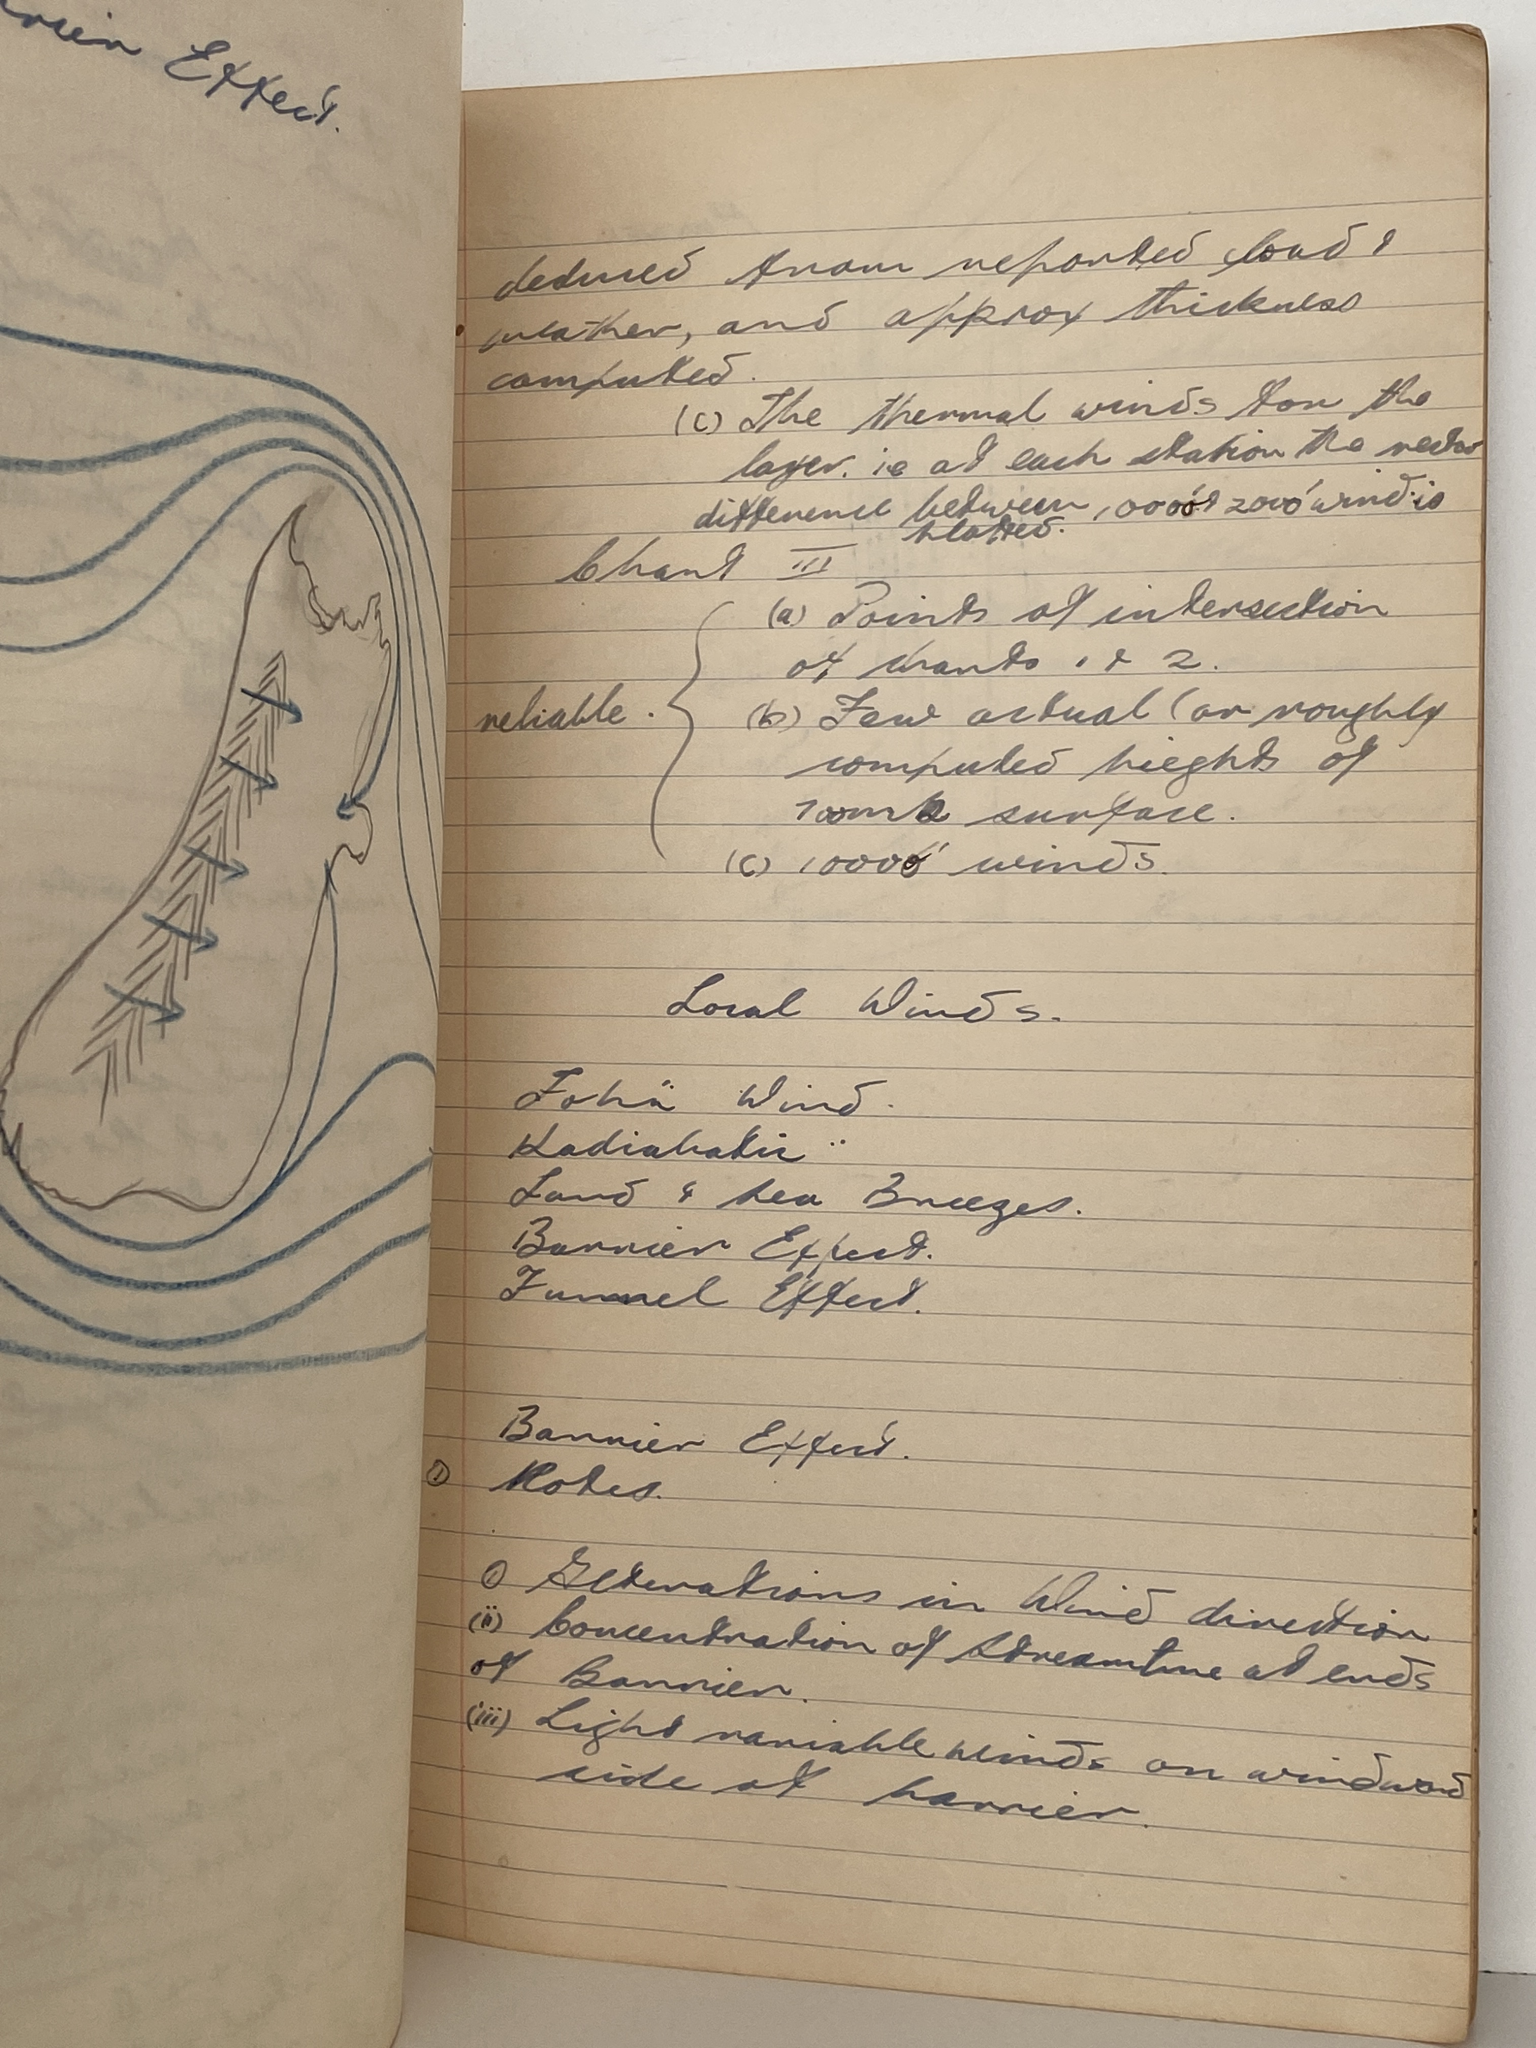 rrier Effect.
deduced from reported cloud &
weather, and approx thickness
computed.
(c) The thermal winds for the
layer. ie at each station the vector
difference between 10000' & 2000' wind is
plotted.
Chart III
(a) Points of intersection
of charts 1 & 2.
reliable.
(b) Few actual (or roughly
computed hieghts of
700mb surface.
(c) 10000' winds.
Local Winds.
Fohn Wind.
Kadiabatic "
Land & Sea Breezes.
Barrier Effect.
Funnel Effect.
Barrier Effect.
① Notes.
① Alterations in Wind direction
(ii) Concentration of Streamline at ends
of Barrier.
(iii) Light variable winds on windward
side of barrier.